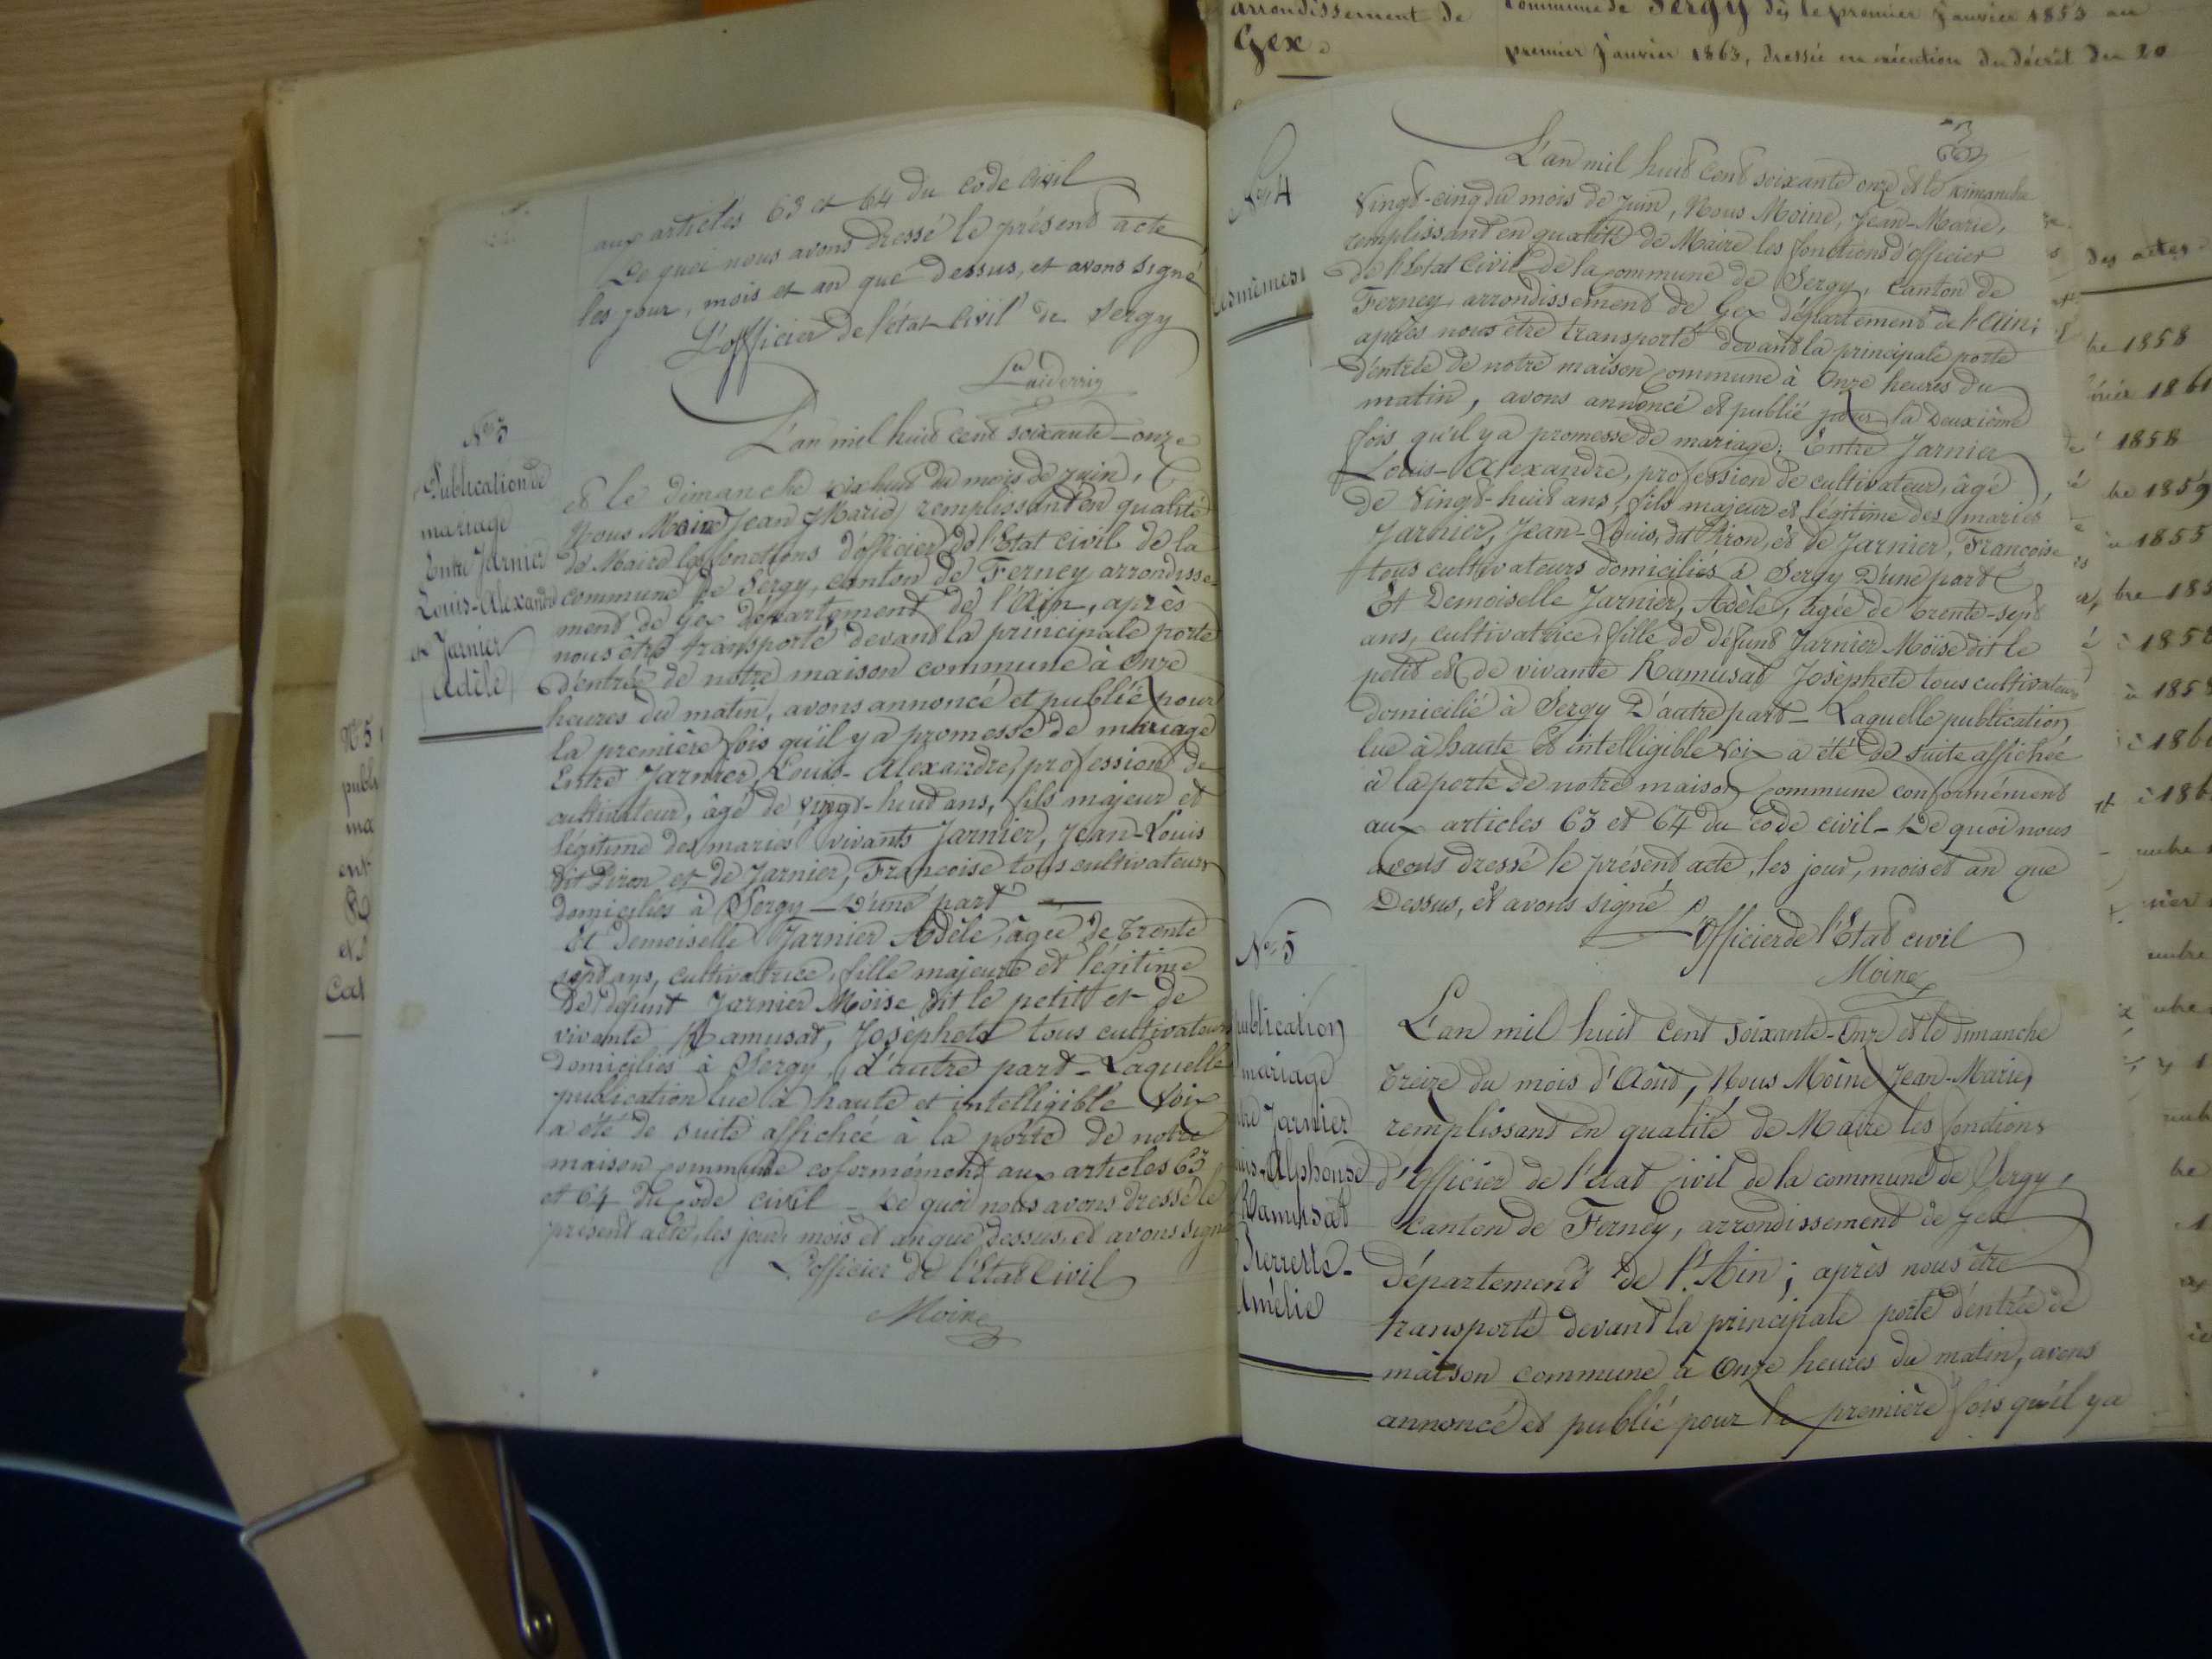 aux articles 63 et 64 du code civil
De quoi nous avons dressé le présent acte
les jour, mois et an que dessus, et avons signé
L'officier de l'état civil de Sergy
No 3
Publication de
mariage
Entre Jarnier
Louis-Alexandre
et Jarnier
Adèle
L'an mil huit cent soixante-onze
et le dimanche dix huit du mois de juin,
Nous Moine Jean Marie remplissant en qualité
de Maire les fonctions d'officier de l'Etat civil de la
commune de Sergy, canton de Ferney arrondisse-
ment de Gex département de l'Ain, après
nous être transporté devant la principale porte
d'entrée de notre maison commune à onze
heures du matin, avons annoncé et publié pour
la première fois qu'il y a promesse de mariage
Entre Jarnier, Louis-Alexandre, profession de
cultivateur, âgé de vingt-huit ans, fils majeur et
légitime des mariés vivants Jarnier, Jean-Louis
dit Piron et de Jarnier, Françoise tous cultivateurs
domiciliés à Sergy - D'une part
Et Demoiselle Jarnier Adèle, âgée de trente
sept ans, cultivatrice, fille majeure et légitime
de défunt Jarnier Moïse dit le petit et de
vivante Ramusat, Josephete tous cultivateurs
domiciliés à Sergy, d'autre part - Laquelle
publication lue à haute et intelligible voix
a été de suite affichée à la porte de notre
maison commune coformément aux articles 63
et 64 du code civil - De quoi nous avons dressé le
présent acte, les jour, mois et an que dessus, et avons signé
L'officier de l'Etat Civil
Moine
No 5
publ
ma
ent
et
Cat
arrondissement de
Gex.
commune de Sergy dès le premier janvier 1853 au
premier janvier 1863, dressée en exécution du décret du 20
No 4
Les mêmes
L'an mil huit cent soixante onze et le dimanche
vingt-cinq du mois de juin, Nous Moine, Jean-Marie,
remplissant en qualité de Maire les fonctions d'officier
de l'Etat Civil de la commune de Sergy, canton de
Ferney, arrondissement de Gex département de l'Ain;
après nous être transporté devant la principale porte
d'entrée de notre maison commune à Onze heures du
matin, avons annoncé et publié pour la Deuxième
fois qu'il y a promesse de mariage, Entre Jarnier
Louis-Alexandre, profession de cultivateur, âgé
de vingt-huit ans, fils majeur et légitime des mariés
Jarnier, Jean-Louis, dit Piron, et de Jarnier, Françoise
tous cultivateurs domiciliés à Sergy D'une part
Et Demoiselle Jarnier, Adèle, âgée de trente-sept
ans, cultivatrice, fille de défunt Jarnier Moïse dit le
petit et de vivante Ramusat Josephete tous cultivateurs
domicilié à Sergy D'autre part - Laquelle publication
lue à haute et intelligible voix a été de suite affichée
à la porte de notre maison commune conformément
aux articles 63 et 64 du code civil - De quoi nous
avons dressé le présent acte, les jour, mois et an que
Dessus, et avons signé
L'Officier de l'Etat civil
Moine
No 5
publication
mariage
Jarnier
Alphonse
Ramusat
Pierrette-
Amélie
L'an mil huit cent soixante-onze et le dimanche
treize du mois d'Août, Nous Moine Jean-Marie,
remplissant en qualité de Maire les fonctions
d'Officier de l'état civil de la commune de Sergy,
canton de Ferney, arrondissement de Gex
Département de l'Ain; après nous être
transporté devant la principale porte d'entrée de
maison commune à Onze heures du matin, avons
annoncé et publié pour la première fois qu'il y a
des actes
bre 1858
1861
1858
bre 1859
1855
bre 185